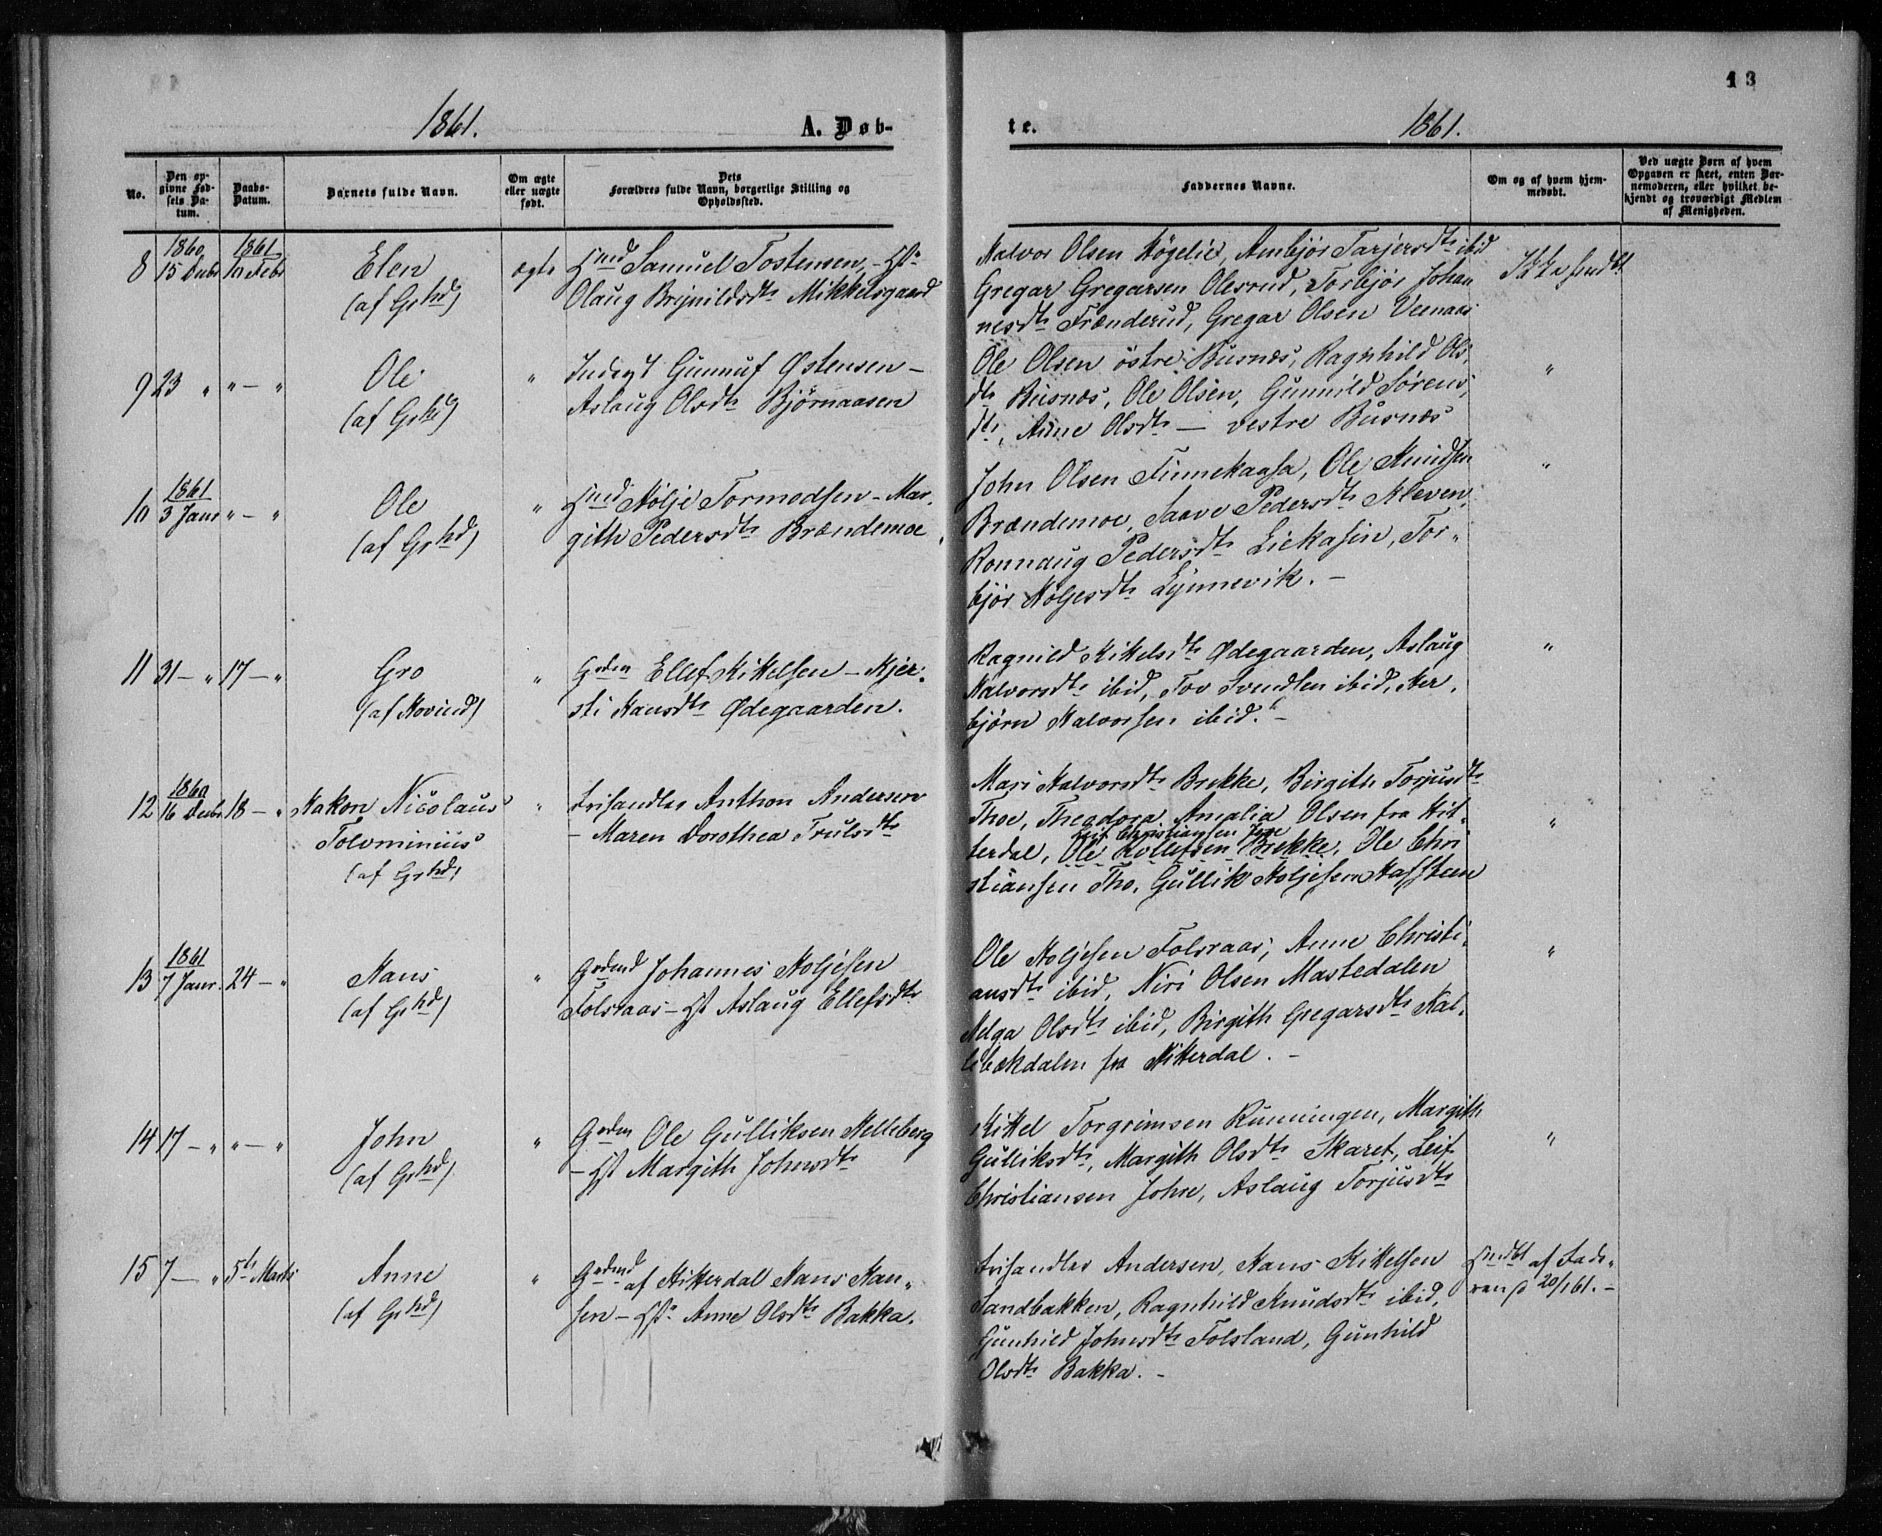 13
1861.
A. Døb-
te.
1861.
No.
Den op-
givne Fød-
sels Da-
tum.
Daabs-
Datum.
Barnets fulde Navn.
Om ægte
eller uægte
født.
Dets
Forældres fulde Navn, borgerlige Stilling og
Opholdssted.
Faddernes Navne.
Om og af hvem hjem-
medøbt.
Ved uægte Børn af hvem
Opgaven er skeet, enten Bar-
nemoderen, eller hvilket be-
kjendt og troværdigt Medlem
af Menigheden.
1860 1861
8 15 Decbr 10 Febr Elen ægte Hmd Samuel Tostensen, - Hst
(af Grhd) Olaug Brynildsdtr Mikkelsgaard
Halvor Olsen Høgelie, Ambjør Tarjersdtr ibid
Gregar Gregarsen Olesrud, Torbjør Johan
nesdtr Frænderud, Gregar Olsen
Ikke hmdbt
9 23 " " - " Ole " Inds Gunnuf Østensen -
(af Grhd) Aslaug Olsdtr Bjørnaasen
Ole Olsen østre Busnæs, Ragnhild Ols
dtr Busnæs, Ole Olsen, Gunnild Sørens
dtr, Anne Olsdtr - vestre Busnæs
"
1861
10 3 Janr " - " Ole " Hmd Hølje Tormodsen - Mar,
(af Grhd) gith Pedersdtr Brændemoe
John Olsen Finnekaasa, Ole Knudsen
Brændemoe, Saave Pedersdtr Kleven,
Ronnaug Pedersdtr Liekasin, Tor-
bjør Høljesdtr Lynnevik. -
"
11 31 - " 17 - " Gro " Grden Ellef Kittelsen - Kjer,
(af Hovind) sti Hansdtr Ødegaarden.
Ragnild Kittelsdtr Ødegaarden, Aslaug
Halvorsdtr ibid, Tov Svendsen ibid, Her,
bjørn Halvorsen ibid. -
"
1860
12 16 Decbr 18 - " Hakon Nicolaus " Frihandler Anthon Andersen
Tolominius - Maren Dorothea Trulsdtr
(af Grhd)
Mari Halvorsdtr Brekke, Birgith Torjusdtr
Thoe, Theodora Amalia Olsen fra Hit,
Leif Christiansen Jore
terdal, Ole Rollefsen Brekke, Ole Chri
stiansen Tho, Gullik Høljesen Haffsteen
"
1861
13 7 Janr. 24 - " Hans " Grdmd Johannes Høljesen
(af Grhd) Folsraas - Hst Aslaug Ellefsdtr
Ole Høljesen Folsraas, Anne Christi,
ansdtr ibid, Niri Olsen Mastedalen
Helga Olsdtr ibid, Birgith Gregarsdtr Kal,
lebækdalen fra Hitterdal. -
"
14 17 - " " - " John " Grden Ole Gulliksen Helleberg
(af Grhd) - Hst Margith Johnsdtr
Kittel Torgrimsen Runningen, Margith
Gulliksdtr, Margith Olsdtr Skaret, Leif
Christiansen Johre, Aslaug Torjusdtr
"
15 7 - " 5te Marts Anne " Grdmd af Hitterdal Hans Han,
(af Grhd) sen - Hst Anne Olsdtr Bakka.
Frihandler Andersen, Hans Kittelsen
Sandbakken, Ragnhild Knudsdtr ibid,
Gunhild Johnsdtr Folsland, Gunhild
Olsdtr Bakka. -
Hmdbt af Fade,
ren 20/1 61. -